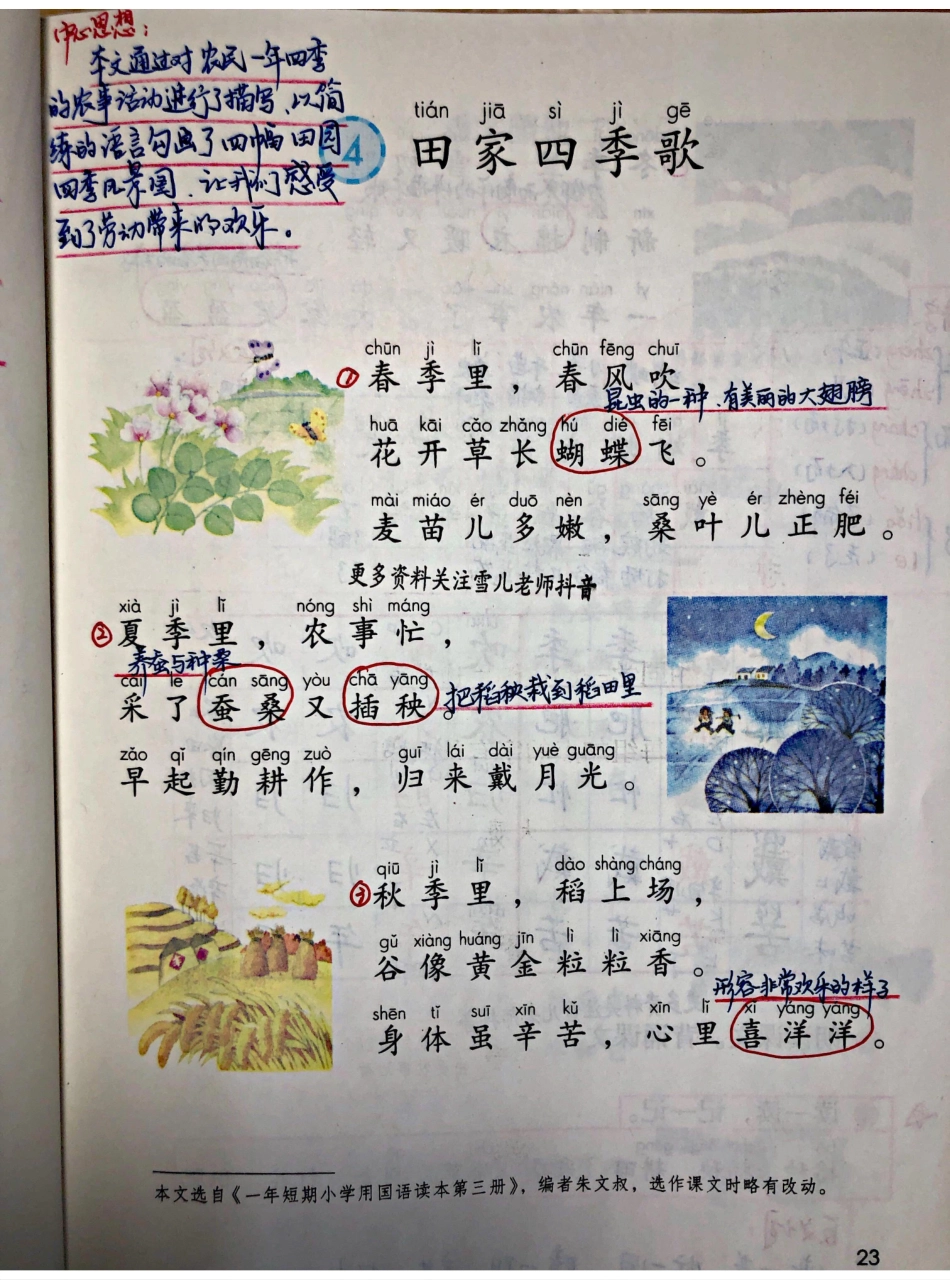 中心思想：
本文通过对农民一年四季
的农事活动进行了描写、以简
练的语言勾画了四幅田园
四季风景图、让我们感受
到了劳动带来的欢乐。
tián jiā sì jì gē
4 田家四季歌
chūn jì lǐ chūn fēng chuī
①春季里，春风吹
昆虫的一种、有美丽的大翅膀
huā kāi cǎo zhǎng hú dié fēi
花开草长蝴蝶飞。
mài miáo ér duō nèn sāng yè ér zhèng féi
麦苗儿多嫩，桑叶儿正肥。
更多资料关注雪儿老师抖音
xià jì lǐ nóng shì máng
②夏季里，农事忙，
养蚕与种桑
cǎi le cán sāng yòu chā yāng
采了蚕桑又插秧。
把稻秧栽到稻田里
zǎo qǐ qín gēng zuò guī lái dài yuè guāng
早起勤耕作，归来戴月光。
qiū jì lǐ dào shàng cháng
③秋季里，稻上场，
gǔ xiàng huáng jīn lì lì xiāng
谷像黄金粒粒香。
形容非常欢乐的样子
shēn tǐ suī xīn kǔ xīn lǐ xǐ yáng yáng
身体虽辛苦，心里喜洋洋。
本文选自《一年短期小学用国语读本第三册》，编者朱文叔，选作课文时略有改动。
23